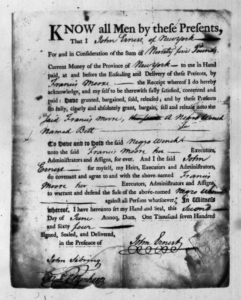 KNOW all Men by these Presents,
That I John Ernest of New york
For and in Consideration of the Sum of Ninety five Pounds
Current Money of the Province of New york to me in Hand
paid, at and before the Ensealing and Delivery of these Presents, by
Francis Moore the Receipt whereof I do hereby
acknowledge, and my self to be therewith fully satisfied, contented and
paid: Have granted, bargained, sold, released; and by these Presents
do fully, clearly and absolutely grant, bargain, sell and release unto the
said Francis Moore, a Negro Wench
Named Bett
To have and to Hold the said Negro Wench
unto the said Francis Moore her Executors,
Administrators and Assigns, for ever. And I the said John
Ernest for myself, my Heirs, Executors and Administrators,
do covenant and agree to and with the above-named Francis
Moore her Executors, Administrators and Assigns,
to warrant and defend the Sale of the above-named Negro
against all Persons whatsoever. In Witness
whereof, I have hereunto set my Hand and Seal, this Second
Day of June Annoq; Dom. One Thousand seven Hundred
and Sixty four
Signed, Sealed, and Delivered,
in the Presence of
John Ernest
John Sebring